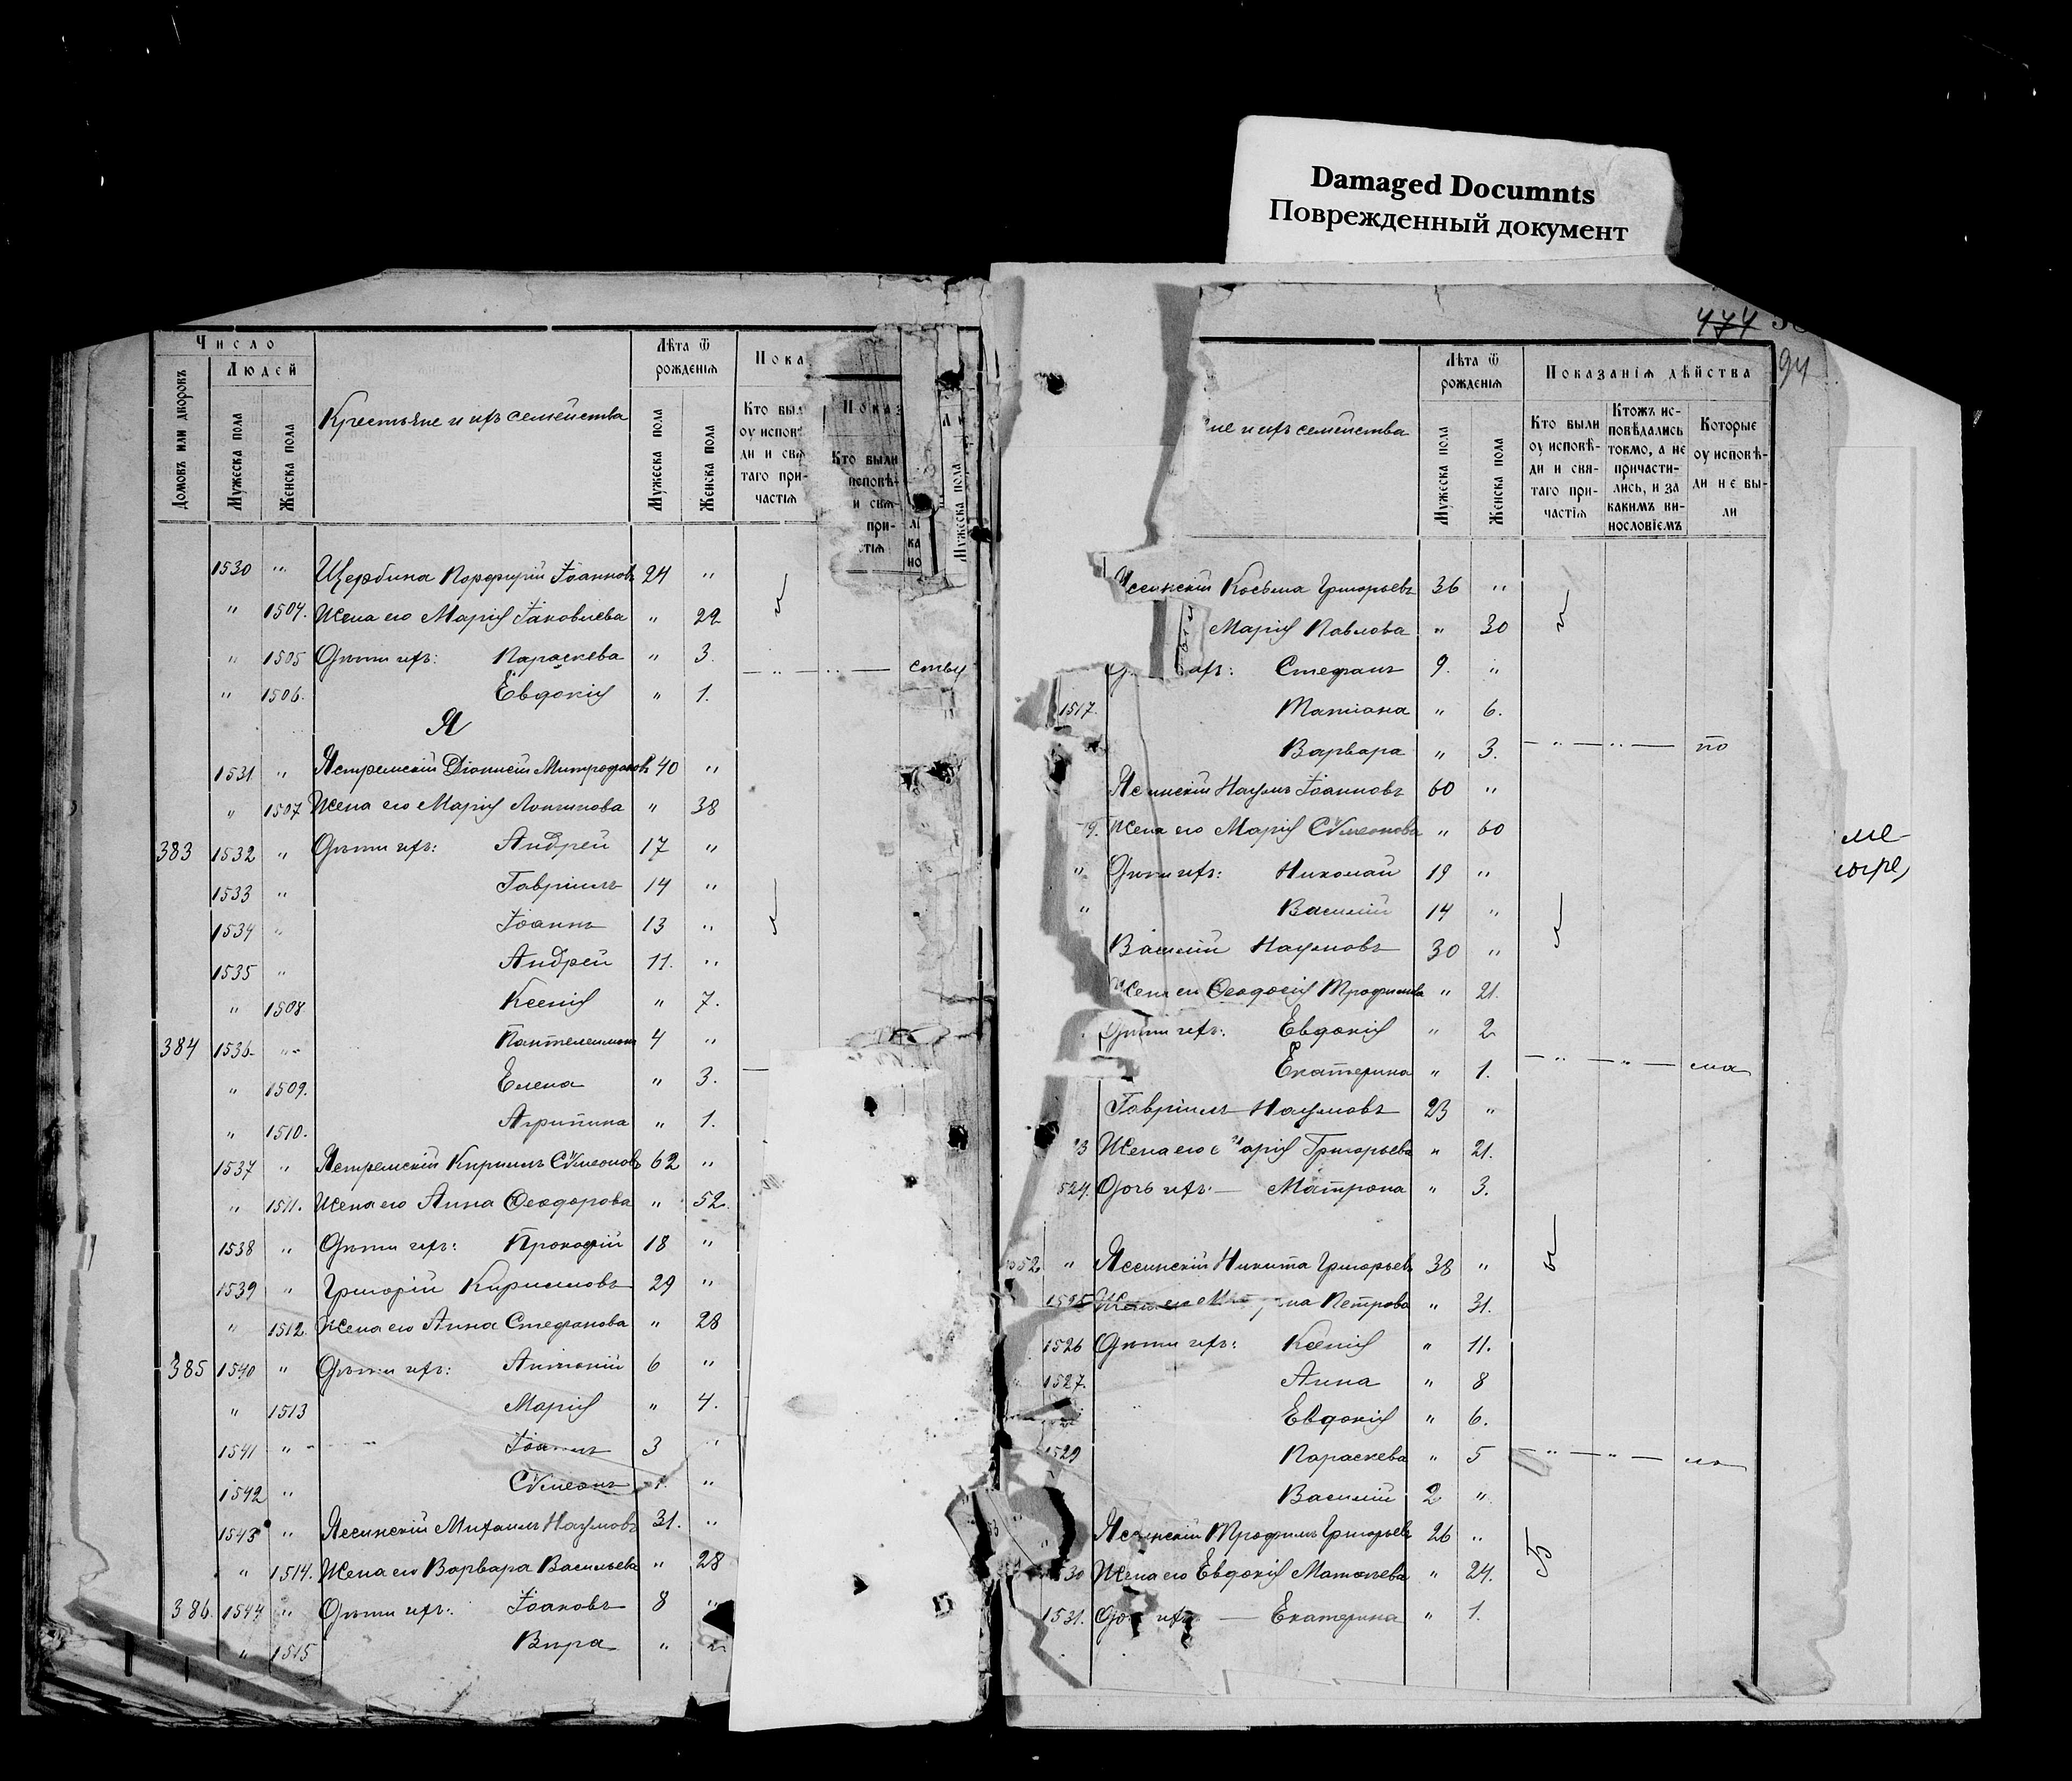 Damaged Documnts
Поврежденный документ
Число
Людей
Домовъ или дворовъ
Мужеска пола
Женска пола
Крестьяне и ихъ семейства
Лѣта ѿ рожденіѧ
Мужеска пола
Женска пола
Пока
Кто был
оу исповѣ
ди и свѧ
таго при-
частіѧ
Показ
Кто были
исповѣ-
и свѧ-
при-
стіѧ
Мужеска пола
1530 " Щербина Порфирій Іоанновъ 24 "
" 1504. Жена его Марія Іаковлева " 22
" 1505 Дѣти ихъ: Параскева " 3.
ству
" 1506. Евдокія " 1.
Я
1531 " Ястремскій Діонисій Митрофановъ 40 "
" 1507 Жена его Марія Лонгинова " 38
383 1532 " Дѣти ихъ: Андрей 17 "
1533 " Гавріилъ 14 "
1534 " Іоаннъ 13 "
1535 " Андрей 11. "
" 1508 Ксенія " 7.
384 1536 " Пантелеимонъ 4 "
" 1509. Елена " 3.
" 1510. Агрипина " 1.
1537 " Ястремскій Кириллъ Сѵмеоновъ 62 "
" 1511. Жена его Анна Ѳеодорова " 52
1538 " Дѣти ихъ: Прокофій 18 "
1539 " Григорій Кирилловъ 29 "
" 1512 Жена его Анна Стефанова " 28
385 1540 " Дѣти ихъ: Антоній 6 "
" 1513 Марія " 4.
1541 " Іоаннъ 3 "
1542 " Сѵмеонъ 1. "
1543 " Ясинскій Михаилъ Наумовъ 31. "
" 1514. Жена его Варвара Васильева " 28
386 1544 " Дѣти ихъ: Іаковъ 8 "
" 1515 Вѣра "
474
94
не и ихъ семейства
Лѣта ѿ рожденіѧ
Мужеска пола
Женска пола
Показаніѧ дѣйства
Кто были
оу исповѣ-
ди и свѧ-
таго при-
частіѧ
Ктожъ ис-
повѣдались
токмо, а не
причасти-
лись, и за
какимъ ви-
нословіемъ
Которые
оу исповѣ-
ди не бы-
ли
Ясинскій Косьма Григорьевъ 36 "
Марія Павлова " 30
ихъ: Стефанъ 9. "
1517. Татіана " 6.
Варвара " 3. — " — " — по
Ясинскій Наумъ Іоанновъ 60 "
9. Жена его Марія Сѵмеонова " 60
" Дѣти ихъ: Николай 19 "
" Василій 14 "
Василій Наумовъ 30 "
Жена его Ѳеодосія Трофимова " 21.
Дѣти ихъ: Евдокія " 2
Екатерина " 1. — " — " —
Гавріилъ Наумовъ 23 "
23 Жена его Марія Григорьева " 21.
524. Дочь ихъ — Матрона " 3.
1552 " Ясинскій Никита Григорьевъ 38 "
1525 Жена его Петрова " 31.
1526 Дѣти ихъ: Ксенія " 11.
1527. Анна " 8
Евдокія " 6.
1529 Параскева " 5 — " — " —
Василій 2 "
" Ясинскій Трофимъ Григорьевъ 26 "
1530 Жена его Евдокія Матвѣева " 24.
1531. Дочь ихъ — Екатерина " 1.